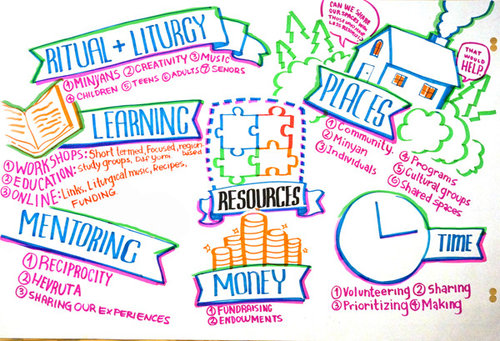 RITUAL + LITURGY
① MINYANS ② CREATIVITY ③ MUSIC
④ CHILDREN ⑤ TEENS ⑥ ADULTS ⑦ SENORS
CAN WE SHARE
OUR SPACES WITH
THOSE WHO HAVE
LESS RESOURCES?
THAT
WOULD
HELP
PLACES
① Community
② Minyan
③ Individuals
④ Programs
⑤ Cultural groups
⑥ Shared spaces
LEARNING
① WORKSHOPS: Short termed, Focused, region based
② EDUCATION: study groups, Daf yumi
③ ONLINE: Links, Liturgical music, Recipes.
FUNDING
RESOURCES
MENTORING
① RECIPROCITY
② HEVRUTA
③ SHARING OUR EXPERIENCES
MONEY
① FUNDRAISING
② ENDOWMENTS
TIME
① Volunteering ② Sharing
③ Prioritizing ④ Making